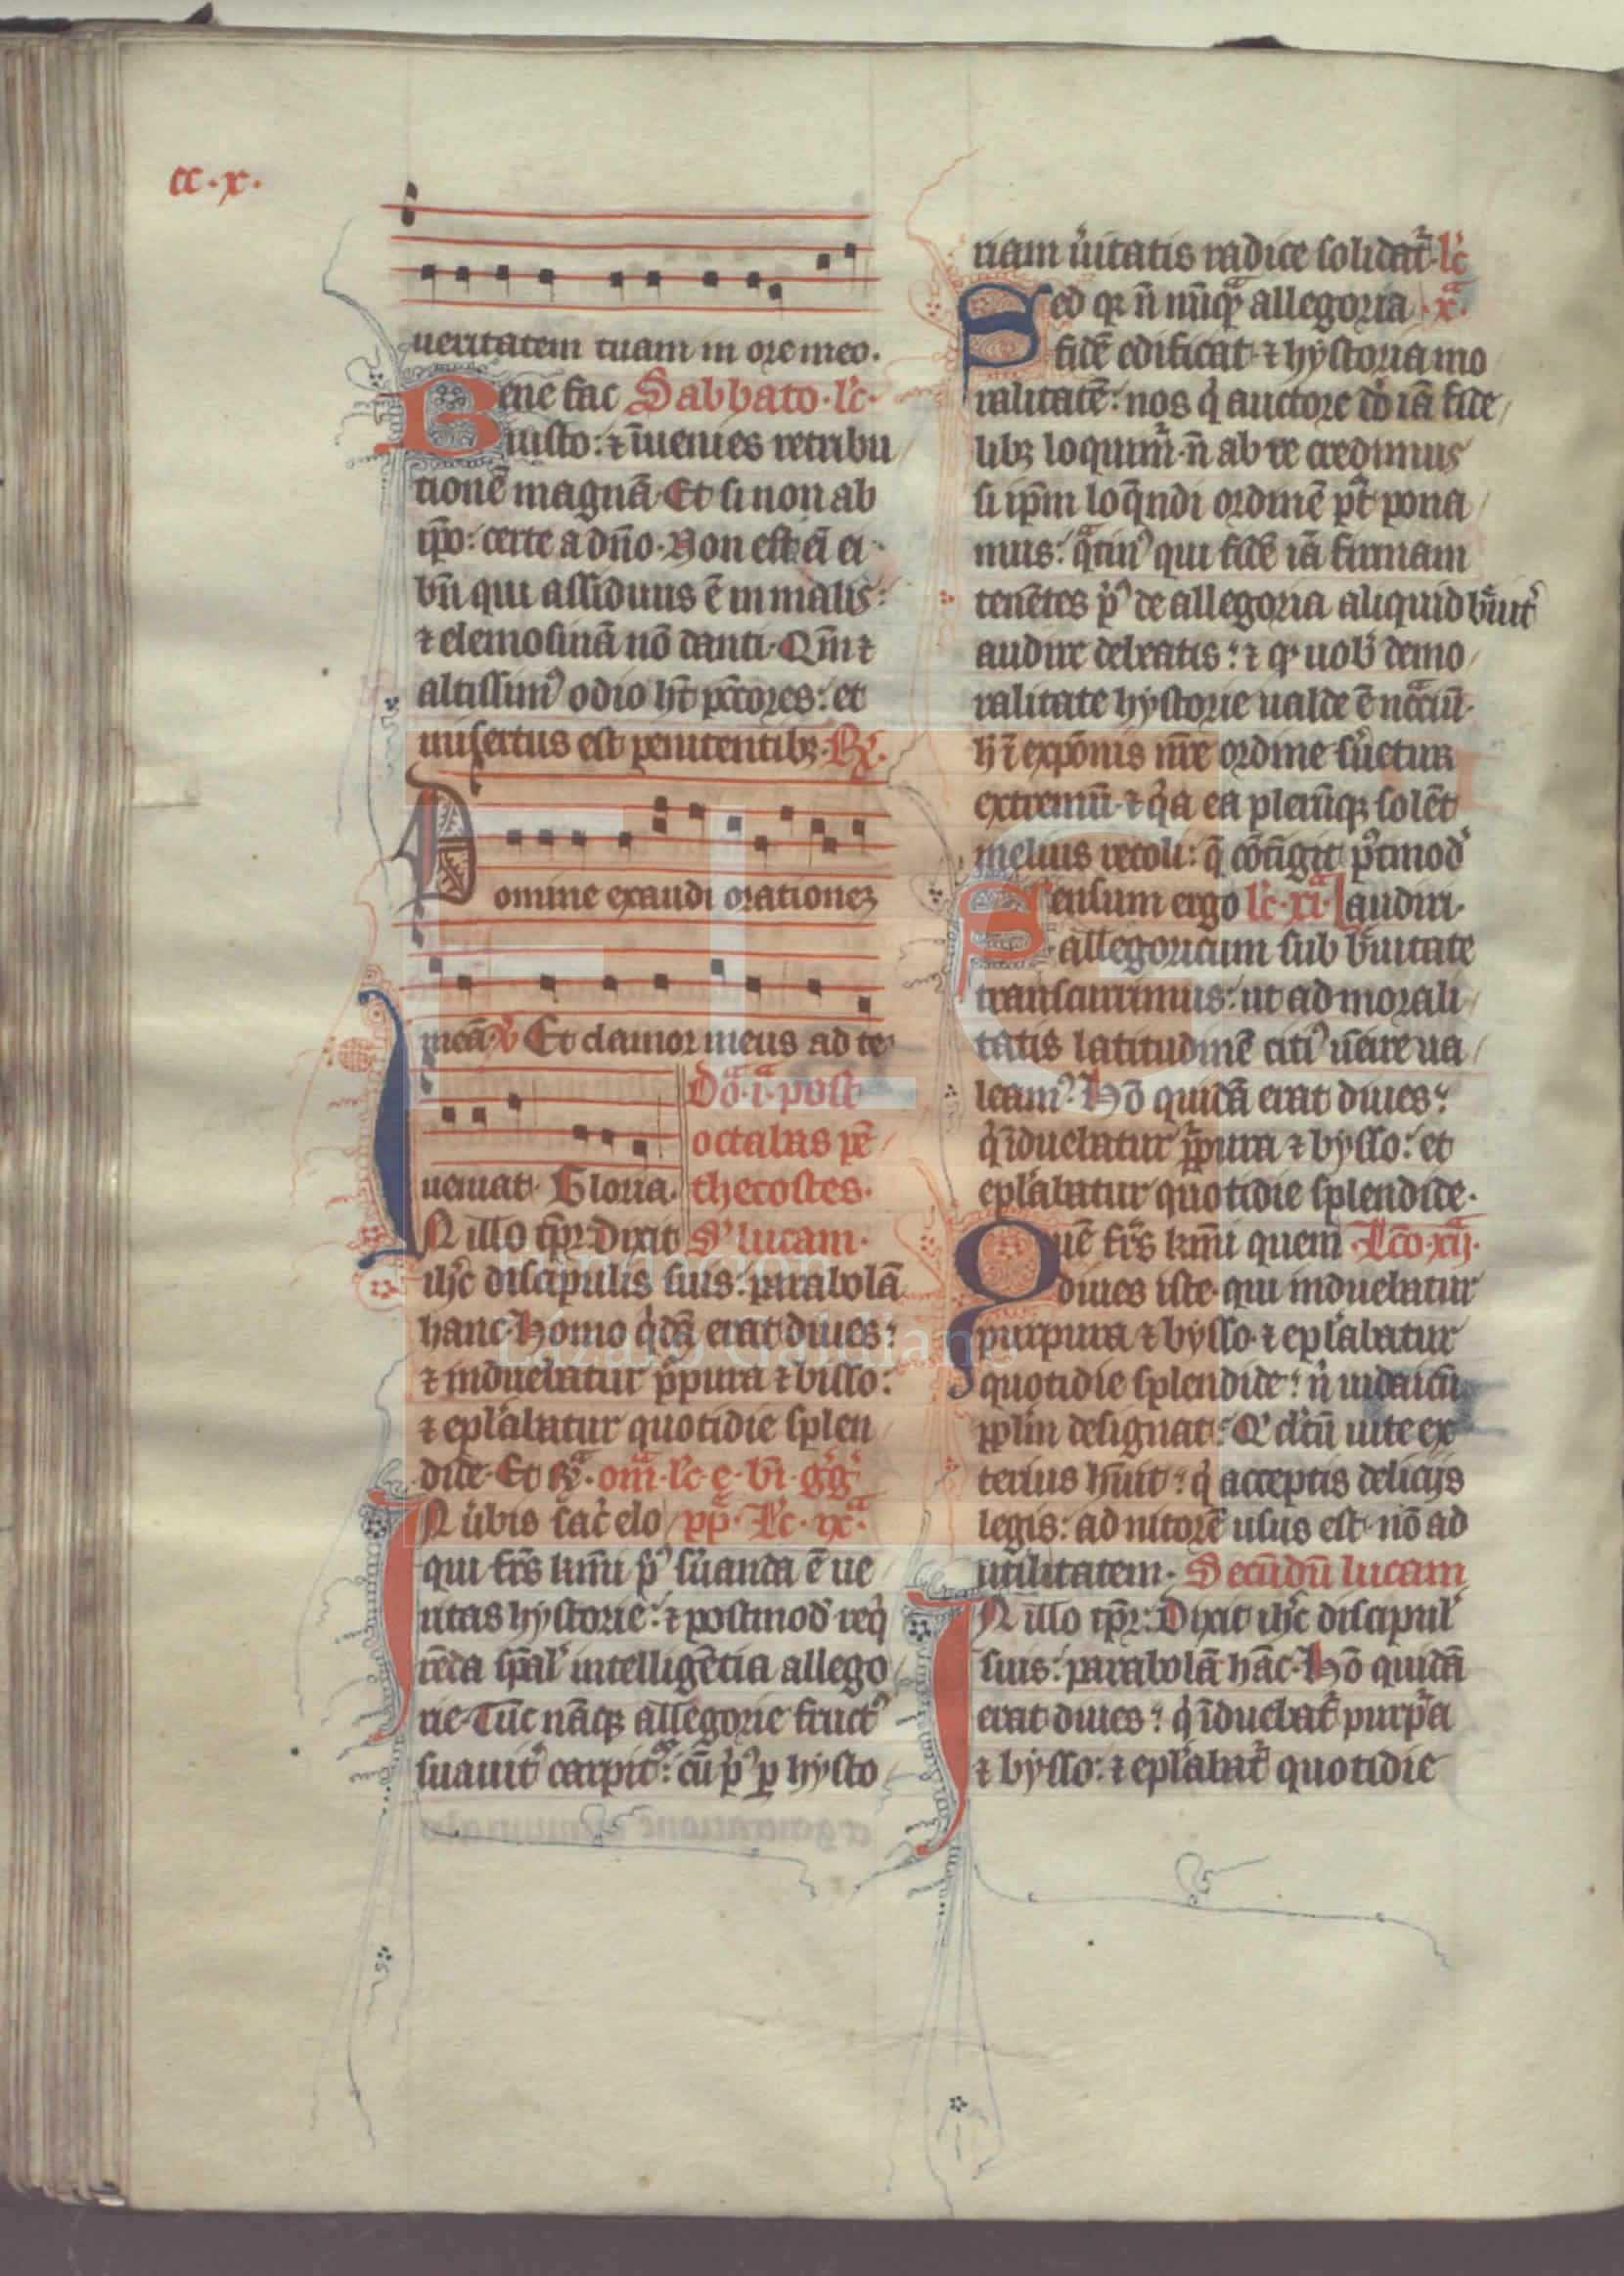 cc.x.
ueritatem tuam in ore meo.
Bene fac Sabbato. l'c.
iusto: ⁊ īuenies retribu
tionē magnā. Et si non ab
ip̄o: certe a dn̄o. Non est eī ei
bn̄ qui assiduus ē in malis:
⁊ elemosinā nō danti. Qm̄ ⁊
altissim᾽ odio hꝫ pc̄cores: et
misertus est penitentibꝫ. R̷.
Domine exaudi orationeꝫ
meā. v̷ Et clamor meus ad te
ueniat. Gloria.
Dō.i. post
octabas pē
thecostes.
S' lucam.
IN illo tp̄r. Dixit
ih̄c discipulis suis: parabolā
hanc. Homo qⁱdā erat diues:
⁊ induebatur p̄pura ⁊ bisso:
⁊ epl'abatur quotidie splen
dide. Et R̷ª. om̄. l'c. ę. bī. gͥgͥ
IN ūbis sac̄ elo pp̄. L'c. ixª.
qui fr̄s kmī p᾽ sūanda ē ue
ritas hystorie: ⁊ postmod' req̄
rēda sp̄al' intelligētia allego
rie. Tūc nāqꝫ allegorie fruct᾽
suauit' carpit': cū p᾽ p hysto
riam ūitatis radice solidat'. l'c
Sed qꝛ n̄ nūqͣ allegoria . xª.
fidē edificat ⁊ hystoria mo
ralitatē: nos qⁱ auctore dō iā fide
libꝫ loquim̄ n̄ ab re credimus
si ip̄m loq̄ndi ordinē p̄t pona
mus: qͣtin᾽ qui fidē iā firmam
tenētes p᾽ de allegoria aliquid b̄uit'
audire debeatis: ⁊ qͣ uob' de mo
ralitate hystorie ualde ē nēcīū.
h ī expōnis nr̄e ordine s̄uetur
extremū. ⁊ qⁱa ea plerūqꝫ solēt
melius recoli: q̄ cōtīgit p᾽tmod'
Sensum ergo l'c. xi.ª audiri.
allegoricum sub b̄uitate
transcurrimus: ut ad morali
tatis latitudinē citi᾽ uēire ua
leam᾽. Hō quidā erat diues:
qⁱ īduebatur p̄pura ⁊ bysso: et
epl'abatur quotidie splendide.
Quē fr̄s kmī quem L'cō. xij.
diues iste. qui induebatur
purpura ⁊ bysso. ⁊ epl'abatur
quotidie splendide: n̄ iudaicū
pp̄lm designat: Qⁱ cl'tū uite ex
terius h̄uit: qⁱ acceptis delicijs
legis: ad nitorē usus est. nō ad
utilitatem. Secūdū lucam
IN illo tp̄r: Dixit ih̄c discipul'
suis: parabolā hāc. Hō quidā
erat diues: qⁱ īduebat' purp̄a
⁊ bysso: ⁊ epl'abat' quotidie